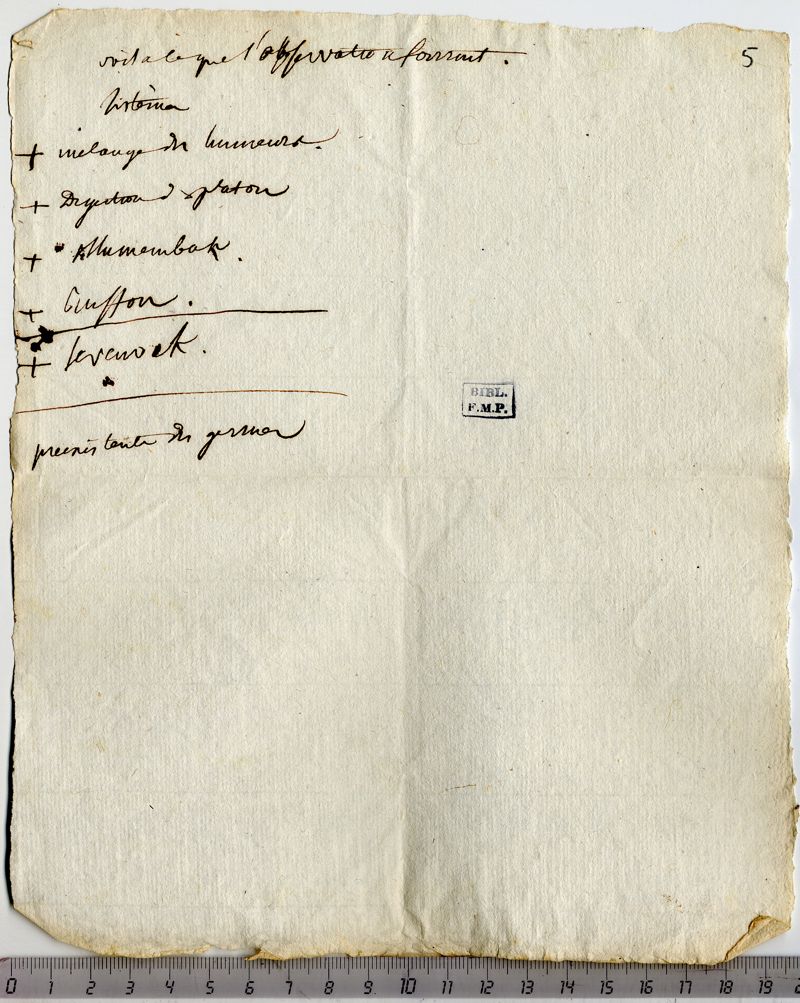 voila ce que l'observation fournit.
5
sistême
+ mélange des humeurs.
+ Digestion d
+
+ Buffon.
+ levenoek.
preexistence des germes
BIBL.
F.M.P.
0 1 2 3 4 5 6 7 8 9 10 11 12 13 14 15 16 17 18 19